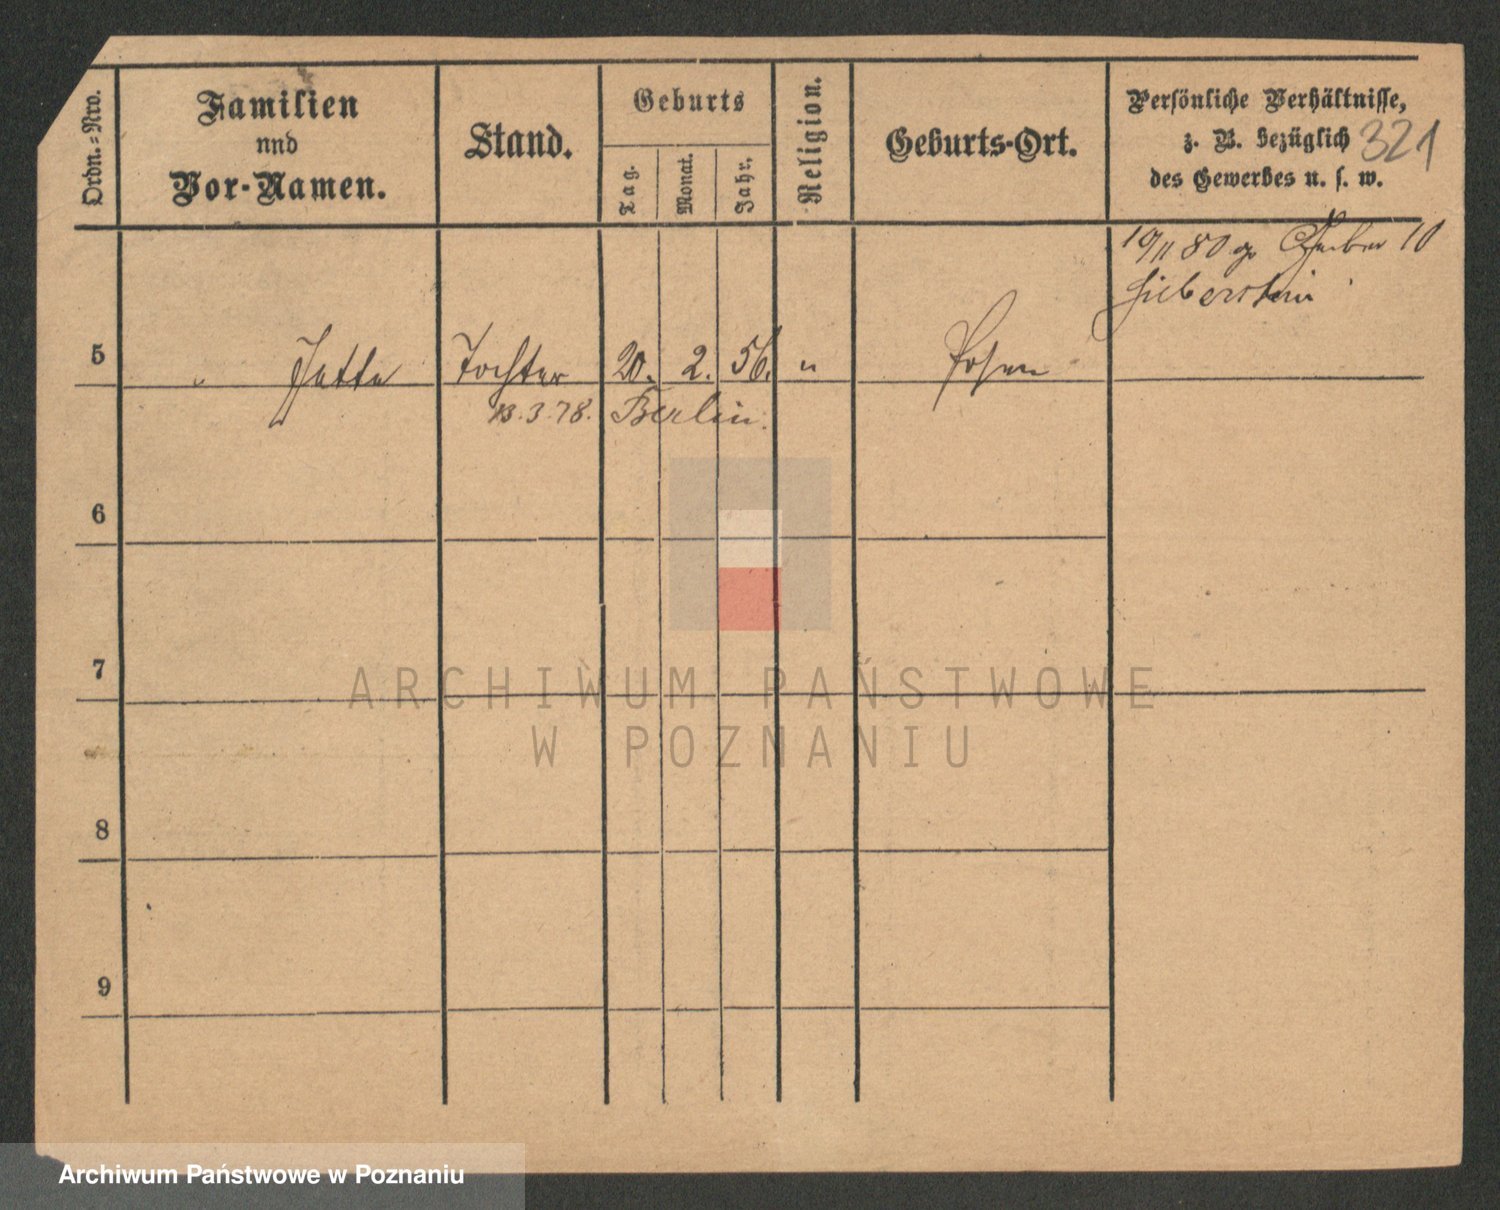 Ordn.-Nro.
Familien
und
Vor-Namen.
Stand.
Geburts
Tag.
Monat.
Jahr.
Religion.
Geburts-Ort.
Persönliche Verhältnisse,
z. B. bezüglich
des Gewerbes u. s. w.
321
19/11 80 Gerber 10
Lieberstein
5 " Jette Tochter 20. 2. 56. " Posen
13.3.78. Berlin.
6
7
8
9
ARCHIWUM PAŃSTWOWE
W POZNANIU
Archiwum Państwowe w Poznaniu